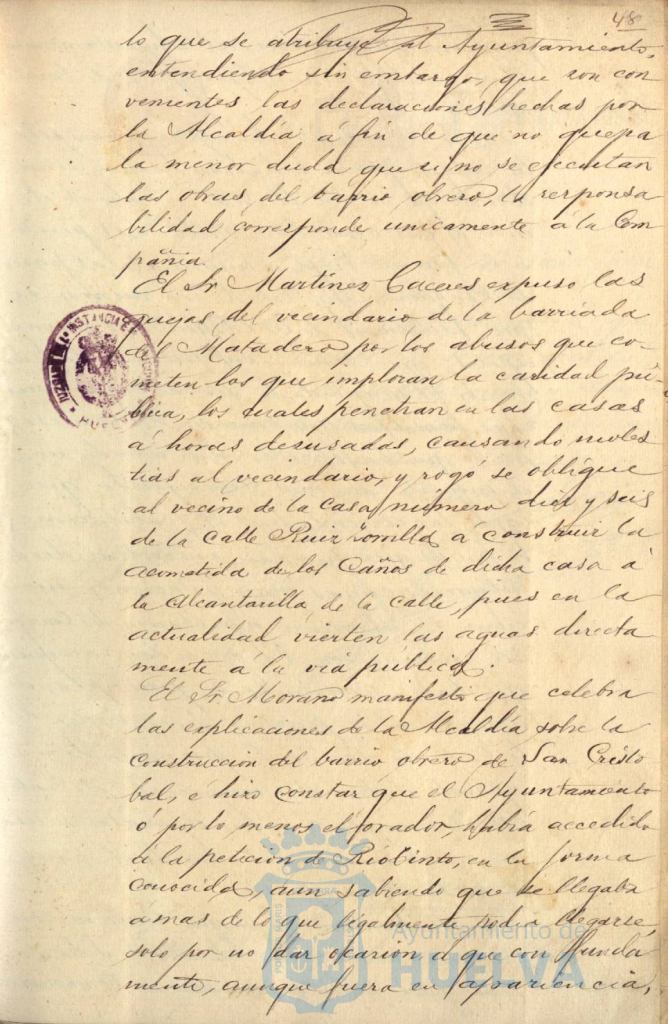 48
lo que se atribuye al Ayuntamiento,
entendiendo sin embargo, que son con
venientes las declaraciones hechas por
la Alcaldía á fin de que no quepa
la menor duda que si no se ejecutan
las obras del barrio obrero, la responsa
bilidad corresponde unicamente á la Com
pañia.
El Sr Martinez Caceres expuso las
quejas del vecindario de la barriada
del Matadero por los abusos que co-
meten los que imploran la caridad pú-
blica, los cuales penetran en las casas
á horas desusadas, causando moles
tias al vecindario, y rogó se obligue
al vecino de la casa número diez y seis
de la calle Ruiz Zorrilla á construir la
acometida de los caños de dicha casa á
la alcantarilla de la calle, pues en la
actualidad vierten las aguas directa
mente á la via pública.
El Sr Morano manifestó que celebra
las explicaciones de la Alcaldía sobre la
construccion del barrio obrero de San Cristo
bal, é hizo constar que el Ayuntamiento
ó por lo menos el orador, habia accedido
á la peticion de Riotinto, en la forma
conocida, aun sabiendo que se llegaba
á mas de lo que legalmente podia llegarse,
solo por no dar ocasion á que con funda
mento, aunque fuera en apariencia,
JUZGADO 1ª INSTANCIA É
HUELVA
Ayuntamiento de
HUELVA